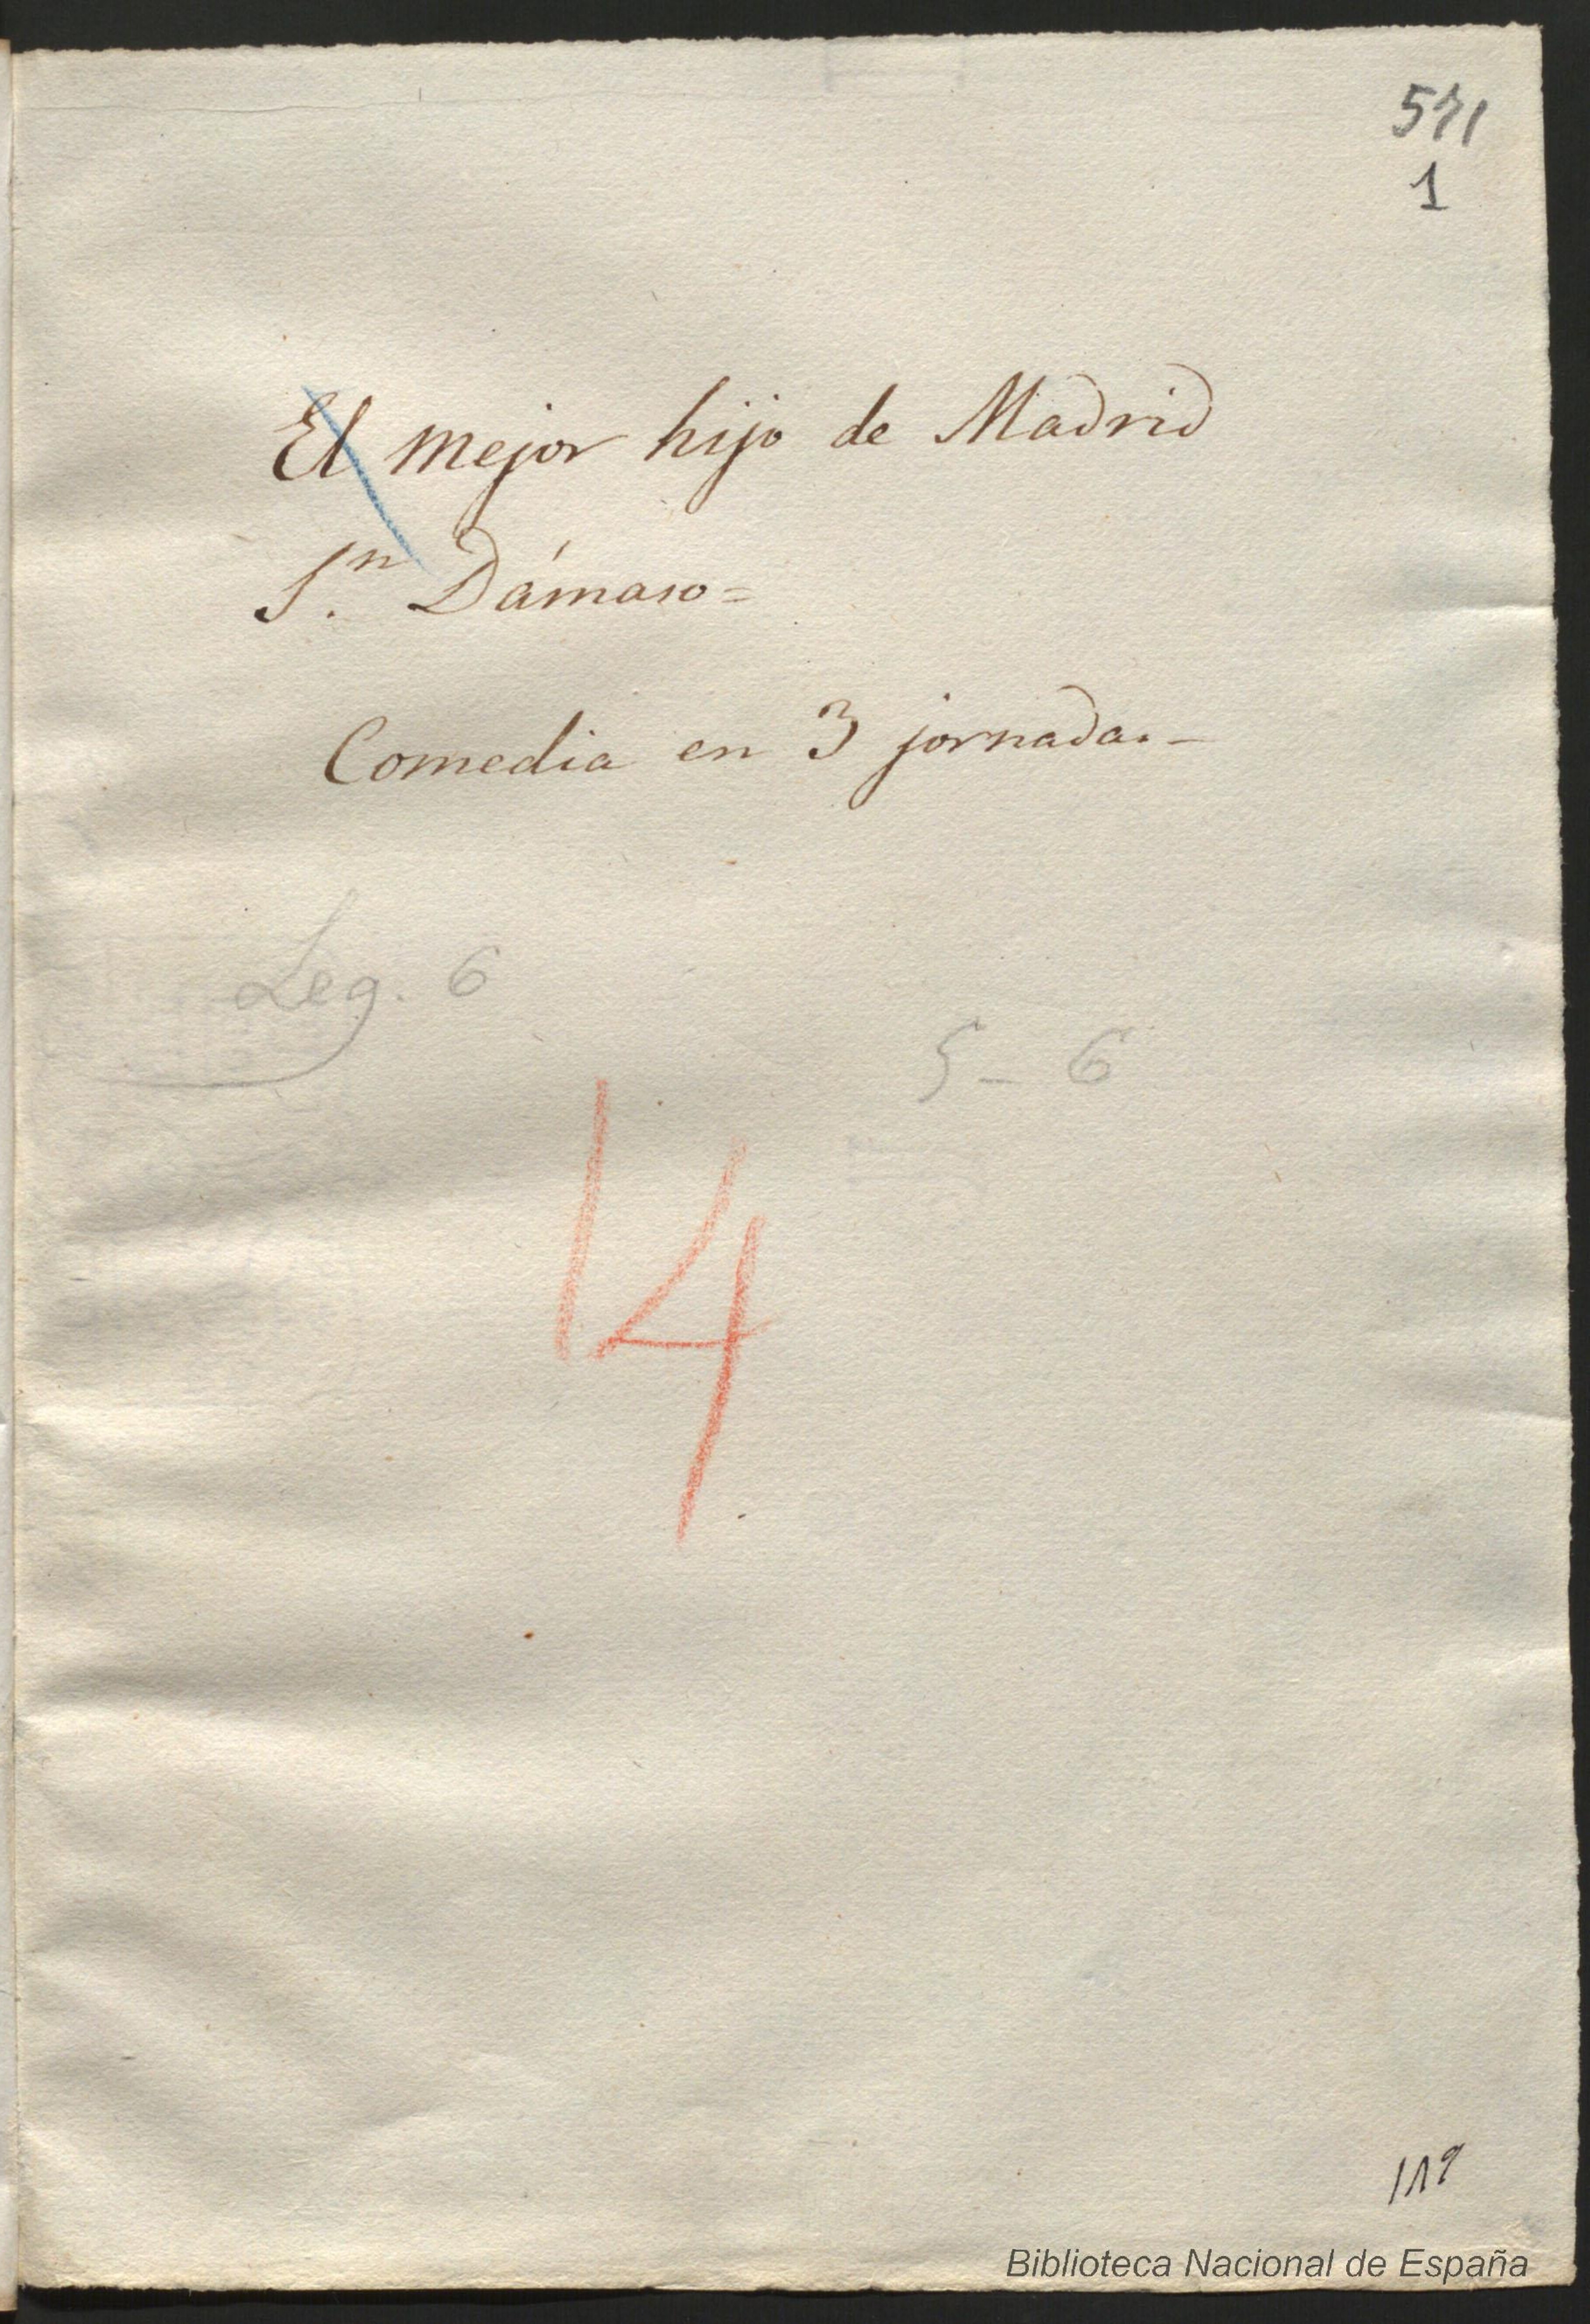 1
El mejor hijo de Madrid
S.n Dámaso=
Comedia en 3 jornadas-
Leg. 6
5 - 6
14
Biblioteca Nacional de España